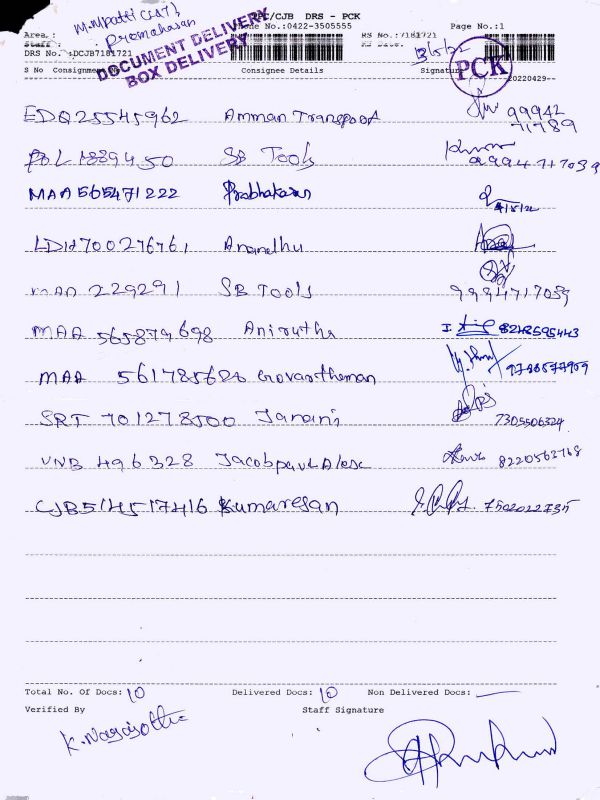 TPC/CJB DRS - PCK
M.N.Patti
Promahasan
Area :
Phone No.:0422-3505555
Page No.:1
RS No.:7181721
Staff :
DRS No. :DCJB7181721
DOCUMENT DELIVERY
BOX DELIVERY
PCK
S No Consignment No Consignee Details Signature 20220429--
EDQ25545962 Amman Transport 99942
71789
1889450 SB Tools 9994717039
MAA 565471222 Prabhakaran 4/5/22
LDH700276761 Anandhu
MAA 2229291 SB Tools 9994717039
MAA 565874698 Anirutha 8248595443
MAA 561785620 Govartheman
SRT 701278500 Janani 7305506324
VNB 496328 Jacobpaul Alex 8220562768
CJB514517416 Kumaresan 7502022735
Total No. Of Docs: 10 Delivered Docs: 10 Non Delivered Docs: —
Verified By Staff Signature